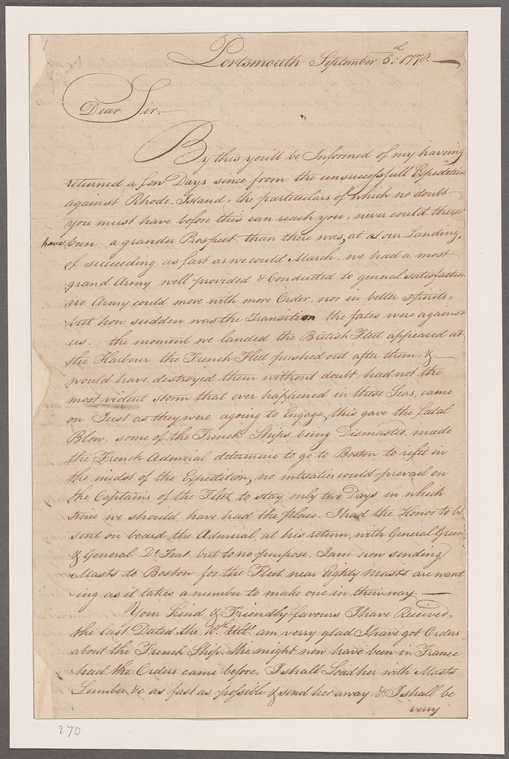 Portsmouth September 5th: 1778.
Dear Sir.
By this you'll be Informed of my haveing
returned a few Days since from the unsuccessfull Expedition
against Rhode Island, the particulars of which no doubt
you must have before this can reach you, never could there
have been a grander Prospect than there was, at as our Landing,
of succeeding as fast as we could March, we had a most
grand Army well provided & Conducted to general satisfaction
no Army could move with more Order, nor in better spirits,
but how sudden was the Transition the fates were against
us. the moment we landed the British Fleet appeared at
the Harbour the French Fleet pushed out after them, &
would have destroyed them without doubt, had not the
most violent storm that ever happened in these Seas, came
on Just as they were agoing to Engage, this gave the fatal
Blow. some of the French Ships being Dismasted, made
the French Admiral determine to go to Boston to refit in
the midst of the Expedition, no intreaties could prevail on
the Captains of the Fleet to stay only two Days in which
time we should have had the place. I had the Honor to be
sent on board the Admiral at his return, with General Green
& General De Feat but to no purpose. I am now sending
Masts to Boston for the Fleet near Eighty Masts are want
ing as it takes a number to make one in their way.
Your Kind & Friendly favours I have Received,
the last Dated the Ulto. am verry glad I have got Orders
about the French Ship. she might now have been in France
had the Orders came before, I shall Load her with Masts
Lumber &c as fast as possible & send her away & I shall be
verry
270